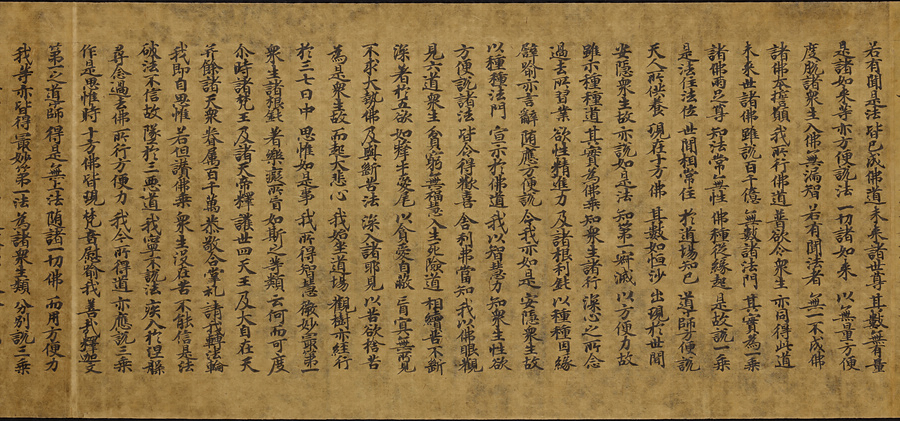 若有聞是法 皆已成佛道 未來諸世尊 其數無有量
是諸如來等 亦方便說法 一切諸如來 以無量方便
度脫諸衆生 入佛無漏智 若有聞法者 無一不成佛
諸佛本誓願 我所行佛道 普欲令衆生 亦同得此道
未來世諸佛 雖說百千億 無數諸法門 其實為一乘
諸佛兩足尊 知法常無性 佛種從緣起 是故說一乘
是法住法位 世間相常住 於道場知已 導師方便說
天人所供養 現在十方佛 其數如恒沙 出現於世間
安隱衆生故 亦說如是法 知第一寂滅 以方便力故
雖示種種道 其實為佛乘 知衆生諸行 深心之所念
過去所習業 欲性精進力 及諸根利鈍 以種種因緣
譬喻亦言辭 隨應方便說 今我亦如是 安隱衆生故
以種種法門 宣示於佛道 我以智慧力 知衆生性欲
方便說諸法 皆令得歡喜 舍利弗當知 我以佛眼觀
見六道衆生 貧窮無福慧 入生死險道 相續苦不斷
深著於五欲 如犛牛愛尾 以貪愛自蔽 盲冥無所見
不求大勢佛 及與斷苦法 深入諸邪見 以苦欲捨苦
為是衆生故 而起大悲心 我始坐道場 觀樹亦經行
於三七日中 思惟如是事 我所得智慧 微妙最第一
衆生諸根鈍 著樂癡所盲 如斯之等類 云何而可度
尒時諸梵王 及諸天帝釋 護世四天王 及大自在天
并餘諸天衆 眷屬百千萬 恭敬合掌礼 請我轉法輪
我即自思惟 若但讚佛乘 衆生沒在苦 不能信是法
破法不信故 墜於三惡道 我寧不說法 疾入於涅槃
尋念過去佛 所行方便力 我今所得道 亦應說三乘
作是思惟時 十方佛皆現 梵音慰喻我 善哉釋迦文
第一之導師 得是無上法 隨諸一切佛 而用方便力
我等亦皆得 最妙第一法 為諸衆生類 分別說三乘